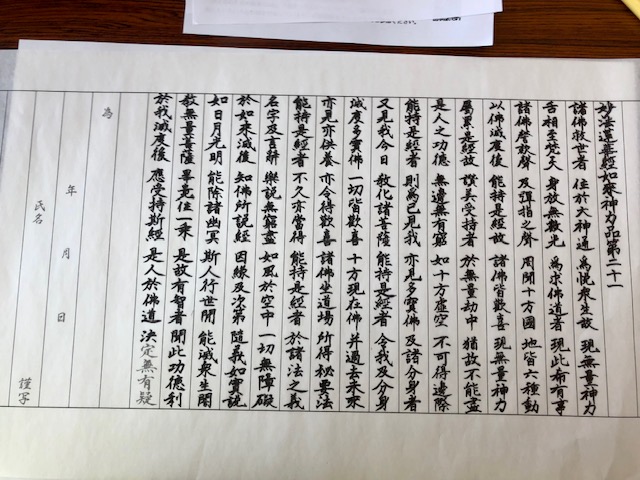 妙法蓮華経如来神力品第二十一
諸佛救世者 住於大神通 為悦衆生故 現無量神力
舌相至梵天 身放無數光 為求佛道者 現此希有事
諸佛謦欬聲 及彈指之聲 周聞十方國 地皆六種動
以佛滅度後 能持是經故 諸佛皆歡喜 現無量神力
屬累是經故 讃美受持者 於無量劫中 猶故不能盡
是人之功德 無邊無有窮 如十方虚空 不可得邊際
能持是經者 則為已見我 亦見多寳佛 及諸分身者
又見我今日 敎化諸菩薩 能持是經者 令我及分身
滅度多寳佛 一切皆歡喜 十方現在佛 并過去未來
亦見亦供養 亦令得歡喜 諸佛坐道場 所得秘要法
能持是經者 不久亦當得 能持是經者 於諸法之義
名字及言辭 樂説無窮盡 如風於空中 一切無障礙
於如來滅後 知佛所説經 因縁及次第 隨義如實説
如日月光明 能除諸幽冥 斯人行世間 能滅衆生闇
敎無量菩薩 畢竟住一乗 是故有智者 聞此功德利
於我滅度後 應受持斯經 是人於佛道 決定無有疑
為
年 月 日
氏名 謹写